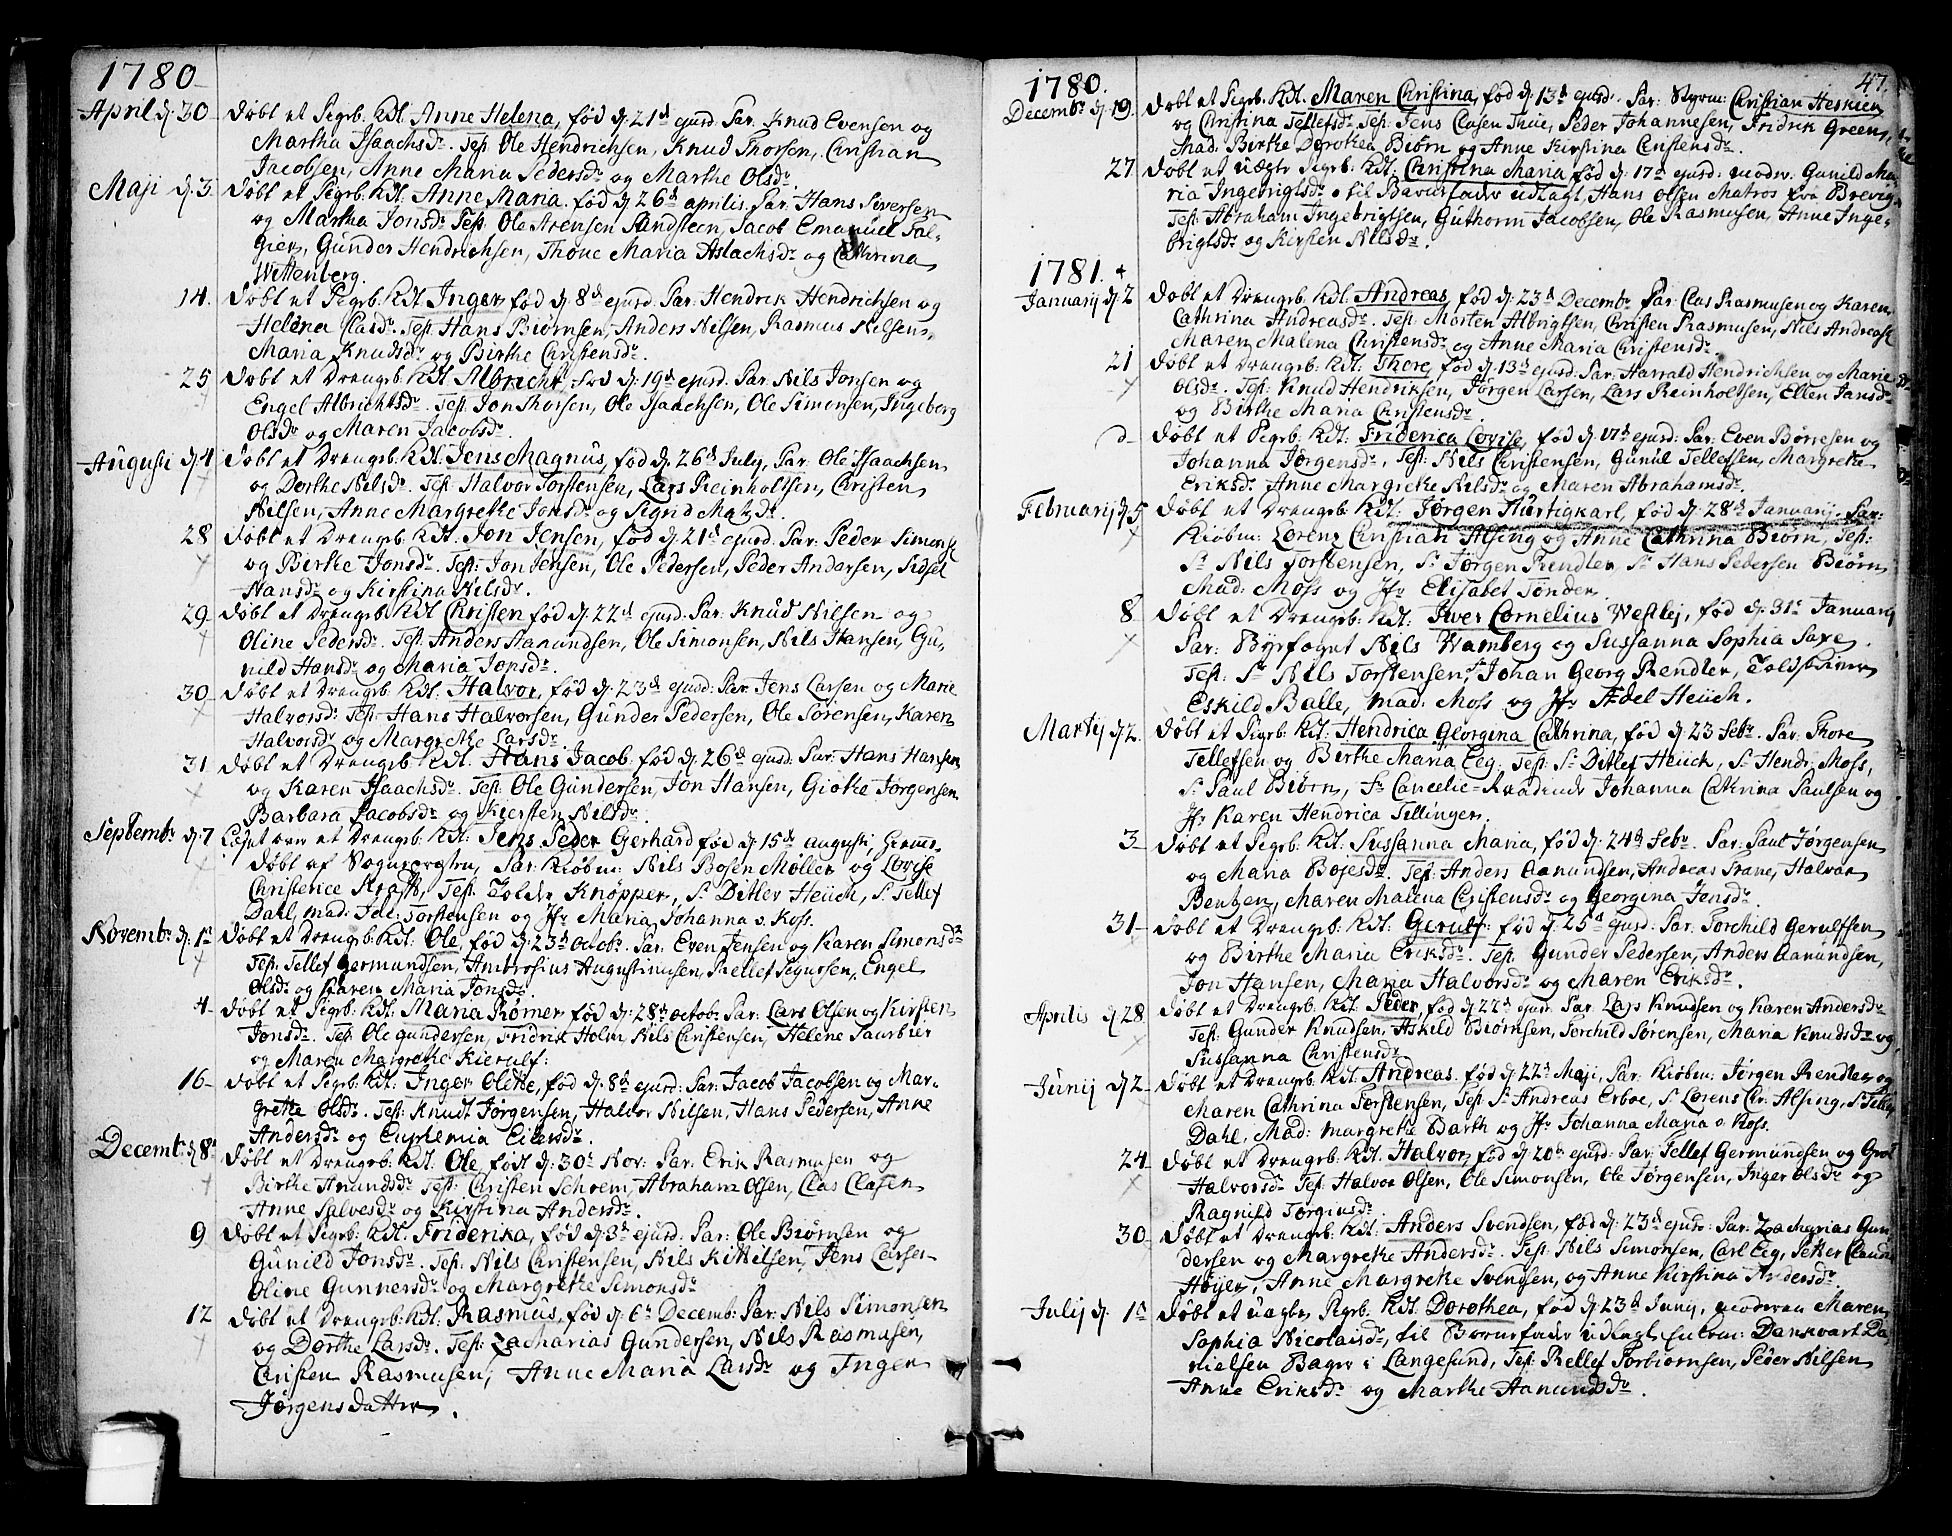 1780
April d. 30 Døbt et Pigeb. Kdt. Anne Helena, fød d. 21d ejusd. Par: Knud Evensen og
Martha Isaachsdr. Test: Ole Hendrichsen, Knud Thorsen, Christian
Jacobsen, Anne Maria Pedersdr og Marthe Olsdr.
Maji d. 3 Døbt et Pigeb. Kdt. Anne Maria. fød d. 26d aprilis. Par. Hans Siversen
og Martha Jonsdr. Test: Ole Arensen Sandsteen, Jacob Emanuel Fal-
gier, Gunder Hendrichsen, Thone Maria Aslachsdr og Cathrina
Wettenberg.
14. Døbt et Pigeb. Kdt. Inger, fød d. 8d ejusd. Par: Hendrik Hendrichsen og
Helena Clasdr. Test: Hans Biørnsen, Anders Nilsen, Rasmus Nilsen,
Maria Knudsdr og Birthe Christensdr.
25 Døbt et Drengeb. Kdt. Albricht, fød d. 19d ejusd. Par: Nils Jonsen og
Engel Albrichtsdr. Test: Jon Thorsen, Ole Isaachsen, Ole Simonsen, Ingeborg
Olsdr og Maren Jacobsdr.
Augusti d. 4 Døbt et Drengeb. Kdt. Jens Magnus, fød d. 26d July, Par: Ole Isaachsen
og Dorthe Nilsdr. Test: Halvor Torstensen, Lars Reinholtsen, Christen
Nilsen, Anne Margrethe Jonsdr og Sigrid Matzdr.
28 Døbt et Drengeb. Kdt. Jon Jensen, fød d. 21d ejusd. Par: Peder Simons.
og Birthe Jonsdr. Test: Jon Jensen, Ole Pedersen, Peder Andersen, Sidsel
Hansdr og Kirstina Nilsdr.
29 Døbt et Drengeb. Kdt. Christen fød d. 22d ejusd. Par: Knud Nilsen og
Oline Pedersdr. Test: Anders Aanundsen, Ole Simonsen, Nils Hansen, Gu-
nild Hansdr og Maria Jonsdr.
30 Døbt et Drengeb. Kdt. Halvor, fød d. 23d ejusd: Par: Jens Larsen og Marie
Halvorsdr. Test: Hans Halvorsen, Gunder Pedersen, Ole Sørensen, Karen
Halvorsdr og Margrethe Larsdr.
31 Døbt et Drengeb. Kdt. Hans Jacob, fød d. 26d ejusd. Par: Hans Hansen
og Karen Isaachsdr. Test: Ole Gundersen, Jon Hansen, Giøthe Jørgensen
Barbara Jacobsdr og Kiersten Nilsdr.
Septembr d. 7 Læset over et Drengeb. Kdt: Jens Peder Gerhard fød d. 15d augusti, hiemme
døbt af Sognepresten, Par: Kiøbm: Nils Bosen Møller og Lovise
Christence Kraft, Test: Tolder Knøpper, Sr Ditlev Heüch, Sr Tellef
Dahl, mad: Torstensen og Jfr Maria Johanna v. Koss.
Novembr d. 1d Døbt et Drengeb. Kdt. Ole, fød d. 23d octobr. Par: Even Jensen og Karen Simonsdr
Test: Tellef Germundsen, Ambrosius Augustinusen, Rellef Sigursen, Engel
Olsdr og Karen Maria Jonsdr.
4 Døbt et Pigeb. Kdt. Maria Rømer fød d. 28d octobr. Par: Lars Olsen og Kirsten
Jonsdr. Test: Ole Gundersen, Fridrik Holm, Nils Christensen, Helene Saurbier
og Maren Margrethe Kierulf.
16 Døbt et Pigeb. Kdt. Inger Olethe, fød d. 8d ejusd: Par: Jacob Jacobsen og Mar-
grethe Olsdr. Test: Knudt Jørgensen, Halvor Nilsen, Hans Pedersen, Anne
Andersdr og Euphemia Eilersdr.
Decembr d. 8d Døbt et Drengeb. Kdt. Ole, født d. 30t Nov. Par: Erik Rasmusen og
Birthe Anundsdr Test: Christen Schrem, Abraham Olsen, Clas Clasen
Anne Salvesdr og Kirstina Andersdr.
9 Døbt et Pigeb. Kdt. Friderika, fød d. 3d ejusd. Par: Ole Biørnsen og
Gunild Jonsdr. Test: Nils Christensen, Nils Kittilsen, Jens Larsen
Oline Gunnersdr og Margrethe Simonsdr
12 Døbt et Drengeb. Kdt. Rasmus, fød d. 6t Decemb: Par: Nils Simonsen
og Dorthe Larsdr. Test: Zacharias Gundersen, Nils Rasmusen,
Christen Rasmusen, Anne Maria Larsdr og Inger
Jørgensdatter.
1780. 47.
Decembr d. 19. Døbt et Pigeb. Kdt. Maren Christina, fød d. 13d ejusd. Par: Styrm: Christian Heskien
og Christina Tellefsdr. Test: Jens Clasen Thue, Peder Johannesen, Fridrik Green,
Mad. Birthe Dorothea Biørn og Anne Kirstina Christensdr.
27 Døbt et uægte Pigeb. Kdt: Christina Maria fød d. 17d ejusd: modr. Gunild Ma-
ria Ingebrigtsdr. til Barnefader udlagt, Hans Olsen Matros fra Brevig.
Test: Abraham Ingebrigtsen, Guthorm Jacobsen, Ole Rasmusen, Anne Inge-
brigtsdr og Kirsten Nilsdr.
1781.
Januarij d. 2 Døbt et Drengeb. Kdt: Andreas, fød d. 23d Decembr Par: Clas Rasmusen og Karen
Cathrina Andreasdr. Test: Morten Albrigtsen, Christen Rasmusen, Nils Andreas.
Maren Malena Christensdr og Anne Maria Christensdr.
21 Døbt et Drengeb. Kdt. Thore, fød d. 13d ejusd: Par: Harrald Hendrichsen og Marie
Olsdr. Test: Knud Hendriksen, Jørgen Larsen, Lars Reinholtsen, Ellen Jansdr
og Birthe Maria Christensdr.
d Døbt et Pigeb. Kdt: Friderica Lovise, fød d. 17d ejusd: Par: Even Børresen og
Johanna Jørgensdr. Test: Nils Christensen, Gunul Tellefsen, Margrethe
Eriksdr. Anne Margrethe Nilsdr og Maren Abrahamsdr.
Februarij d. 5 Døbt et Drengeb. Kdt: Jørgen Hurtigkarl, fød d. 28d Januarij. Par:
Kiøbm: Lorenz Christian Alsing og Anne Cathrina Biørn, Test:
Sr Nils Torstensen, Sr Jørgen Rendler, Sr Hans Pedersen Biørn
Mad: Moss og Jfr Elisabet Tonder.
8 Døbt et Drengeb. Kdt: Iver Cornelius Westlej, fød d. 31t Januarij
Par: Byefoget Nils Wamberg og Sussanna Sophia Saxe.
Test: Sr Nils Torstensen, Sr Johan Georg Rendler,
Eskild Balle, mad: Moss og Jfr Adel Heüch.
Martij d. 2. Døbt et Pigeb. Kdt: Hendrica Georgina Cathrina, fød d. 23 Febr. Par: Thore
Tellefsen og Birthe Maria Eeg. Test: Sr Ditlef Heüch, Sr Hendr: Moss,
Sr Paul Biørn, Fr Cancelie-Raadinde Johanna Cathrina Paulsen og
Jfr Karen Hendrica Tellinger.
3 Døbt et Pigeb. Kdt: Sussanna Maria, fød d. 24d Febr. Par: Paul Jørgensen
og Maria Bojesdr. Test: Anders Aamundsen, Andreas Trane, Halvor
Bentzen, Maren Malena Christensdr og Georgina Jensdr.
31 Døbt et Drengeb. Kdt: Gerulf: fød d. 25d ejusd. Par: Torchild Gerulfsen
og Birthe Maria Eriksdr. Test: Gunder Pedersen, Anders Aanundsen,
Jon Hansen, Maria Halvorsdr og Maren Eriksdr.
Aprilis d. 28 Døbt et Drengeb. Kdt: Peder, fød d. 22d ejusd. Par: Lars Knudsen og Karen Andersdr
Test: Gunder Knudsen, Askild Biørnsen, Torchild Sørensen, Maria Knudsdr og
Sussanna Christensdr
Junij d. 2. Døbt et Drengeb. Kdt: Andreas. fød d. 22d Maji, Par: Kiøbm: Jørgen Rendler og
Maren Cathrina Torstensen, Test: Sr Andreas Erboe, Sr Lorens Chr. Alsing, Sr Tellef
Dahl, Mad: Margrethe Barth og Jfr Johanna Maria v. Koss.
24 Døbt et Drengeb. Kdt. Halvor, fød d. 20d ejusd: Par: Tellef Germundsen og Groe
Halvorsdr. Test: Halvor Olsen, Ole Simonsen, Ole Jørgensen, Inger Olsdr og
Ragnild Torgiusdr.
30 Døbt et Drengeb. Kdt: Anders Svendsen, fød d. 23d ejusd: Par: Zacharias Gun-
dersen og Margrethe Andersdr. Test: Nils Simonsen, Carl Eeg, Petter Claudi
Høyer, Anne Margrethe Svendsen, og Anne Kirstina Andersdr.
Julij d. 1d Døbt et uægte Pigeb. Kdt. Dorothea, fød d. 23d Junij, moderen Maren
Sophia Nicolaisdr, til Barnefader udlagt Dankvart Da-
nielsen Bager i Langesund, Test: Rellef Torbiørnsen, Peder Nilsen
Anne Eriksdr og Marthe Aanundsdr.